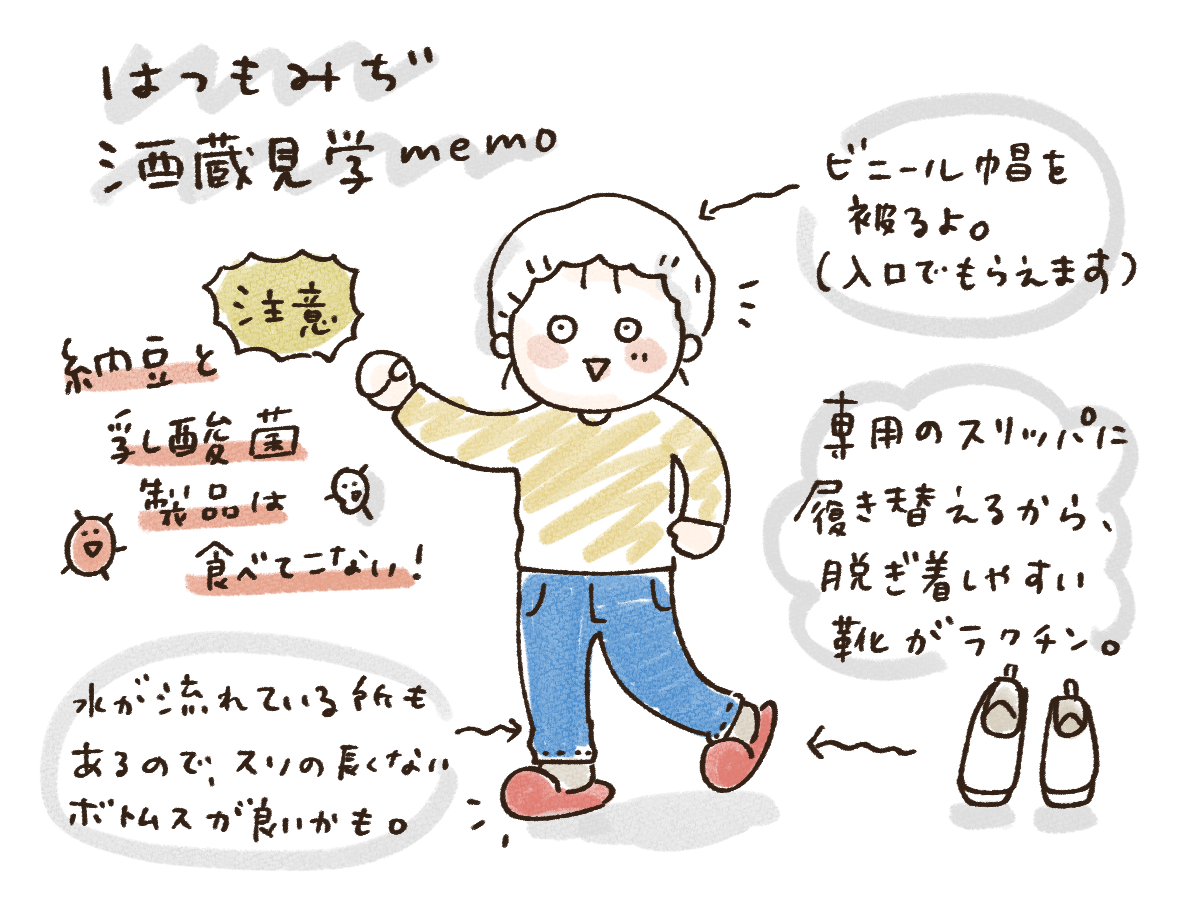 はつもみぢ
酒蔵見学memo
ビニール帽を
被るよ。
(入口でもらえます)
注意
納豆と
乳酸菌
製品は
食べてこない!
専用のスリッパに
履き替えるから、
脱ぎ着しやすい
靴がラクチン。
水が流れている所も
あるので、スソの長くない
ボトムスが良いかも。